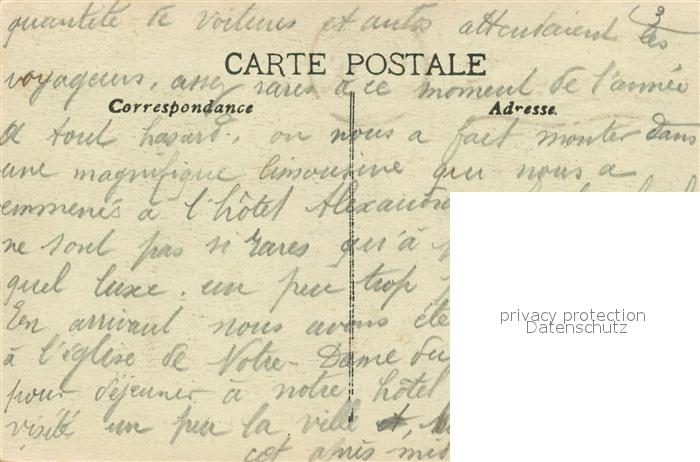 3
quantité de voitures et autos attendaient les
CARTE POSTALE
voyageurs, assez rares à ce moment de l'année
Correspondance
Adresse.
A tout hasard, on nous a fait monter dans
une magnifique limousine qui nous a
emmenés à l'hôtel Alexandra
ne sont pas si rares qu'à
quel luxe. un peu trop
En arrivant nous avons été
à l'église de Notre-Dame du
pour déjeuner à notre hôtel
visité un peu la ville et,
cet après midi
privacy protection
Datenschutz